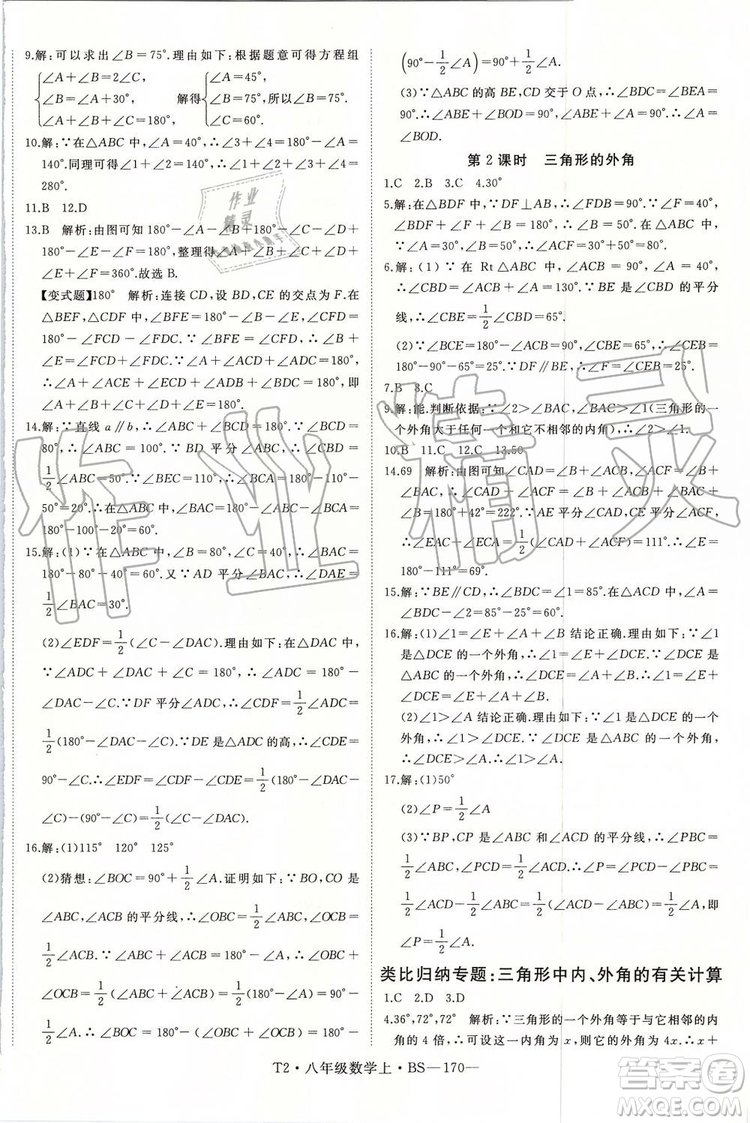 9.解:可以求出∠B=75°.理由如下:根据题意可得方程组
{∠A+∠B=2∠C, ∠A=∠B+30°, ∠A+∠B+∠C=180°, 解得{∠A=45°, ∠B=75°,所以∠B=75°. ∠C=60°.
10.解:∵在△ADE中,∠A=40°,∴∠3+∠4=180°-∠A=
140°.同理可得∠1+∠2=140°.∴∠1+∠2+∠3+∠4=
280°.
11.B 12.D
13.B 解析:由图可知180°-∠A-∠B+180°-∠C-∠D+
180°-∠E-∠F=180°,整理得∠A+∠B+∠C+∠D+
∠E+∠F=360°.故选B.
【变式题】180° 解析:连接CD,设BD,CE的交点为F.在
△BEF,△CDF中,∠BFE=180°-∠B-∠E,∠CFD=
180°-∠FCD-∠FDC.∵∠BFE=∠CFD,∴∠B+∠E=
∠FCD+∠FDC.在△ACD中,∠A+∠ACD+∠ADC=
180°,∴∠A+∠ACE+∠ADB+∠B+∠E=180°,即
∠A+∠B+∠ACE+∠ADB+∠E=180°.
14.解:∵直线a∥b,∴∠ABC+∠BAC+∠1+∠2=180°.
∴∠ABC=180°-∠1-∠2-∠BAC=
80°.∴∠ABC=100°.∵BD平分∠ABC,∴∠CBD=
1/2∠ABC=50°.∵∠BEC=110°,∴∠1=180°-110°-
50°=20°.∴在△ABC中,∠2=180°-∠1-∠ABC=
180°-100°-20°=60°.
15.解:(1)∵在△ABC中,∠B=60°,∠C=60°,∴∠BAC=
180°-60°-60°=60°.又∵AD平分∠BAC,∴∠BAD=
1/2∠BAC=30°.
(2)∠EDF=1/2(∠C+∠DAC).理由如下:∵在△ADC
中,∠ADC+∠DAC+∠C=180°,∴∠ADC=180°-
∠DAC-∠C.∵DF平分∠ADC,∴∠CDF=1/2∠ADC=
1/2(180°-∠DAC-∠C).∵DE是△ADC的高,∴∠CDE=
90°-∠C.∴∠EDF=∠CDF-∠CDE=1/2(180°-∠DAC-
∠C)-(90°-∠C)=1/2(∠C-∠DAC).
16.解:(1)115° 120° 125°
(2)猜想:∠BOC=90°+1/2∠A.证明如下:∵BO,CO是
∠ABC,∠ACB的平分线,∴∠OBC=1/2∠ABC,∠OCB=
1/2∠ACB.∵∠ABC+∠ACB=180°-∠A,∴∠OBC+
∠OCB=1/2(∠ABC+∠ACB)=1/2(180°-∠A)=90°-
1/2∠A.∴∠BOC=180°-(∠OBC+∠OCB)=180°-
(90°-1/2∠A)=90°+1/2∠A.
(3)∵△ABC的高BE,CD交于O点,∴∠BDC=∠BEA=
90°.∴∠ABE+∠BOD=90°,∠ABE+∠A=90°.∴∠A=
∠BOD.
第2课时 三角形的外角
1.C 2.B 3.C 4.30°
5.解:在△BDF中,∵DF⊥AB,∴∠BFD=90°.∴∠B=
∠BDF=90°.∵∠D=40°,∴∠B=50°.在△ABC
中,∵∠A=30°,∴∠ACF=∠A+∠B=30°+50°=80°.
6.解:(1)∵在Rt△ABC中,∠ACB=90°,∠A=40°,
∴∠CBD=∠ACB+∠A=130°.∵BE是∠CBD的平分
线,∴∠CBE=1/2∠CBD=65°.
(2)∵∠ACB=90°,∠CBE=65°,∴∠CEB=
180°-90°-65°=25°.∵DF∥BE,∴∠F=∠CEB=25°.
7.B 8.C
9.解:能.判断依据:∵∠2>∠BAC,∠BAC>∠1(三角形的一
个外角大于任何一个和它不相邻的内角),∴∠2>∠1.
10.B 11.C 12.C 13.50
14.69 解析:由图可得∠CAD=∠ABC+∠ACB,∠ACF=∠B+
∠BAC,∴∠CAD+∠ACF=∠B+∠ACB+∠B+∠BAC=
∠B+180°=42°+180°=222°.∵AE平分∠CAD,CE平分
∠ACF,∴∠EAC+∠ECA=1/2(∠CAD+∠ACF)=111°.∴∠E=
180°-111°=69°.
15.解:∵BE∥CD,∴∠1=∠B=85°.∵在△ADC中,∠1=
∠A+∠C,∠C=∠A,
16.解:(1)∠1=∠E+∠A+∠B结论正确.理由如下:∵∠1
是△DCE的一个外角,∴∠1=∠E+∠DCE,∵∠DCE=
∠A+∠B,∴∠1=∠E+∠A+∠B.
(2)∠1>∠A结论正确.理由如下:∵∠1是△DCE的一个
外角,∴∠1>∠DCE.∵∠DCE是△ABC的一个外角,
∴∠DCE>∠A.∴∠1>∠A.
17.解:(1)50°
(2)∠P=1/2∠A
(3)∵BP,CP是∠ABC与∠ACD的平分线,∴∠PBC=
1/2∠ABC,∠PCD=1/2∠ACD.∵∠ACD=∠A+∠ABC,
∠PCD=∠P+∠PBC,
即∠P=1/2∠A.
类比归纳专题:三角形中内、外角的有关计算
1.C 2.D 3.D
4.36°,72°,72° 解析:∵三角形的一个外角等于与它相邻的内角
的4倍,∴可设这一内角为x,则它的外角为4x.∴x+
T2·八年级数学上·BS—170—
作业精灵
作业精灵
答案圈
MXQE.COM